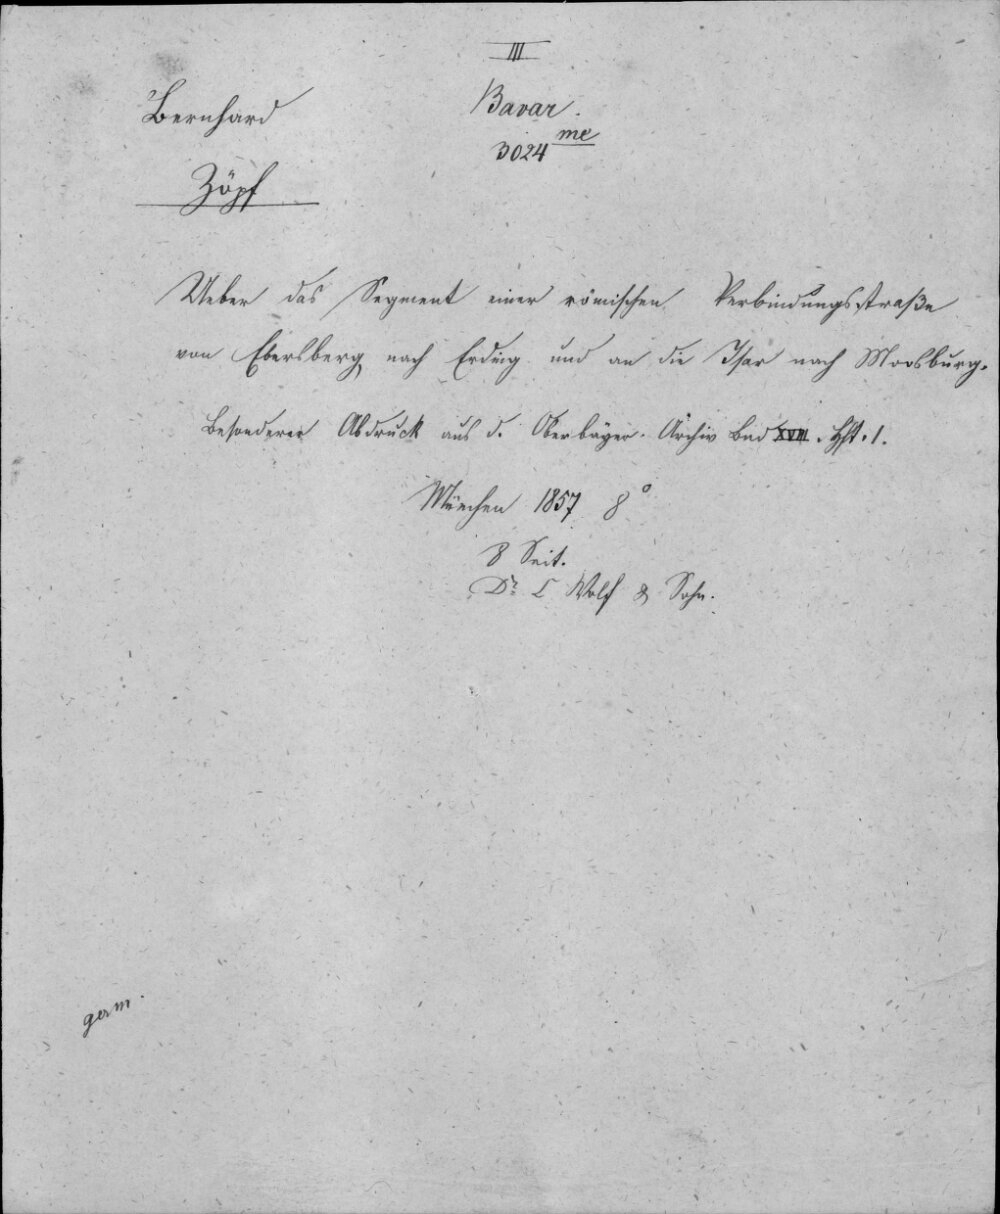 III
Bernhard
Bavar.
3024 me
Zöpf
Ueber das Segment einer römischen Verbindungsstraße
von Ebersberg nach Erding und an die Isar nach Moosburg.
Besonderer Abdruck aus d. Oberbayer. Archiv Bnd XVIII. Hft. 1.
München 1857 8°
8 Seit.
Dr. C Wolf & Sohn.
germ.